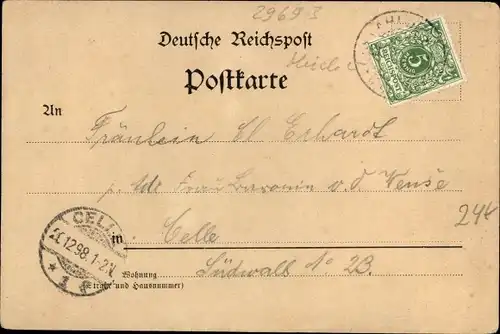 2969-3
Deutsche Reichspost
Postkarte
5
REICHSPOST
An
Fräulein El Erhardt
p. Adr Frau Baronin v. d Wense
24t
CELLE
26.12.98.1-2N
* 1
in
Celle
Wohnung
(Straße und Hausnummer)
Südwall No 2B.